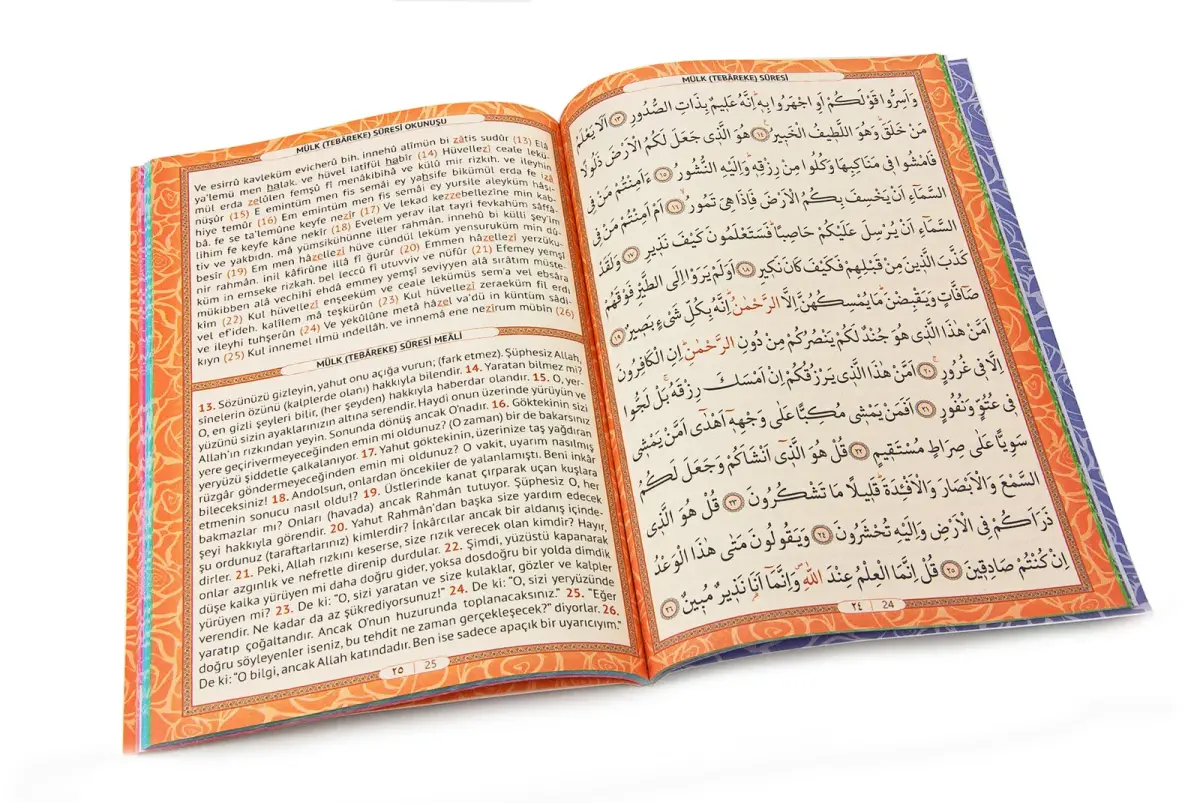 MÜLK (TEBÂREKE) SÛRESİ
وَاَسِرُّوا قَوْلَكُمْ اَوِ اجْهَرُوا بِهِ اِنَّهُ عَلِيمٌ بِذَاتِ الصُّدُورِ ﴿١٣﴾ اَلَا يَعْلَمُ
مَنْ خَلَقَ وَهُوَ اللَّطِيفُ الْخَبِيرُ ﴿١٤﴾ هُوَ الَّذِى جَعَلَ لَكُمُ الْاَرْضَ ذَلُولًا
فَامْشُوا فِى مَنَاكِبِهَا وَكُلُوا مِنْ رِزْقِهِ وَاِلَيْهِ النُّشُورُ ﴿١٥﴾ ءَاَمِنْتُمْ مَنْ فِى
السَّمَاءِ اَنْ يَخْسِفَ بِكُمُ الْاَرْضَ فَاِذَا هِىَ تَمُورُ ﴿١٦﴾ اَمْ اَمِنْتُمْ مَنْ فِى
السَّمَاءِ اَنْ يُرْسِلَ عَلَيْكُمْ حَاصِبًا فَسَتَعْلَمُونَ كَيْفَ نَذِيرِ ﴿١٧﴾ وَلَقَدْ
كَذَّبَ الَّذِينَ مِنْ قَبْلِهِمْ فَكَيْفَ كَانَ نَكِيرِ ﴿١٨﴾ اَوَلَمْ يَرَوْا اِلَى الطَّيْرِ فَوْقَهُمْ
صَافَّاتٍ وَيَقْبِضْنَ مَا يُمْسِكُهُنَّ اِلَّا الرَّحْمٰنُ اِنَّهُ بِكُلِّ شَىْءٍ بَصِيرٌ ﴿١٩﴾
اَمَّنْ هٰذَا الَّذِى هُوَ جُنْدٌ لَكُمْ يَنْصُرُكُمْ مِنْ دُونِ الرَّحْمٰنِ اِنِ الْكَافِرُونَ
اِلَّا فِى غُرُورٍ ﴿٢٠﴾ اَمَّنْ هٰذَا الَّذِى يَرْزُقُكُمْ اِنْ اَمْسَكَ رِزْقَهُ بَلْ لَجُّوا
فِى عُتُوٍّ وَنُفُورٍ ﴿٢١﴾ اَفَمَنْ يَمْشِى مُكِبًّا عَلٰى وَجْهِهِ اَهْدٰى اَمَّنْ يَمْشِى
سَوِيًّا عَلٰى صِرَاطٍ مُسْتَقِيمٍ ﴿٢٢﴾ قُلْ هُوَ الَّذِى اَنْشَاَكُمْ وَجَعَلَ لَكُمُ
السَّمْعَ وَالْاَبْصَارَ وَالْاَفْئِدَةَ قَلِيلًا مَا تَشْكُرُونَ ﴿٢٣﴾ قُلْ هُوَ الَّذِى
ذَرَاَكُمْ فِى الْاَرْضِ وَاِلَيْهِ تُحْشَرُونَ ﴿٢٤﴾ وَيَقُولُونَ مَتٰى هٰذَا الْوَعْدُ
اِنْ كُنْتُمْ صَادِقِينَ ﴿٢٥﴾ قُلْ اِنَّمَا الْعِلْمُ عِنْدَ اللّٰهِ وَاِنَّمَا اَنَا نَذِيرٌ مُبِينٌ ﴿٢٦﴾
٢٤ 24
MÜLK (TEBÂREKE) SÛRESİ OKUNUŞU
Ve esirrû kavleküm evicherû bih, innehû alîmün bi zâtis sudûr (13) Elâ
ya'lemü men halak, ve hüvel latîfül habîr (14) Hüvellezî ceale lekü-
mül erda zelûlen femşû fî menâkibihâ ve külû mir rizkıh, ve ileyhin
nüşûr (15) E emintüm men fis semâi ey yahsife bikümül erda fe izâ
hiye temûr (16) Em emintüm men fis semâi ey yursile aleyküm hâsi-
bâ, fe se ta'lemûne keyfe nezîr (17) Ve lekad kezzebellezîne min kab-
lihim fe keyfe kâne nekîr (18) Evelem yerav ilat tayri fevkahüm sâffâ-
tiv ve yakbıdn, mâ yümsikühünne iller rahmân, innehû bi külli şey'im
besîr (19) Em men hâzellezî hüve cündül leküm yensuruküm min dû-
nir rahmân, inil kâfirûne illâ fî ğurûr (20) Emmen hâzellezî yerzüku-
küm in emseke rizkah, bel leccû fî utuvviv ve nüfûr (21) Efemey yemşî
mükibben alâ vechihî ehdâ emmey yemşî seviyyen alâ sırâtım müste-
kîm (22) Kul hüvellezî enşeeküm ve ceale lekümüs sem'a vel ebsâra
vel ef'ideh, kalîlem mâ teşkürûn (23) Kul hüvellezî zeraeküm fil erdı
ve ileyhi tuhşerûn (24) Ve yekûlûne metâ hâzel va'dü in küntüm sâdi-
kıyn (25) Kul innemel ılmü indellâh, ve innemâ ene nezîrum mübîn (26)
MÜLK (TEBÂREKE) SÛRESİ MEÂLİ
13. Sözünüzü gizleyin, yahut onu açığa vurun; (fark etmez). Şüphesiz Allah,
sinelerin özünü (kalplerde olanı) hakkıyla bilendir. 14. Yaratan bilmez mi?
O, en gizli şeyleri bilir, (her şeyden) hakkıyla haberdar olandır. 15. O, yer-
yüzünü sizin ayaklarınızın altına serendir. Haydi onun üzerinde yürüyün ve
Allah'ın rızkından yeyin. Sonunda dönüş ancak O'nadır. 16. Göktekinin sizi
yere geçirivermeyeceğinden emin mi oldunuz? (O zaman) bir de bakarsınız
yeryüzü şiddetle çalkalanıyor. 17. Yahut göktekinin, üzerinize taş yağdıran
rüzgâr göndermeyeceğinden emin mi oldunuz? O vakit, uyarım nasılmış
bileceksiniz! 18. Andolsun, onlardan öncekiler de yalanlamıştı. Beni inkâr
etmenin sonucu nasıl oldu!? 19. Üstlerinde kanat çırparak uçan kuşlara
bakmazlar mı? Onları (havada) ancak Rahmân tutuyor. Şüphesiz O, her
şeyi hakkıyla görendir. 20. Yahut Rahmân'dan başka size yardım edecek
şu ordunuz (taraftarlarınız) kimlerdir? İnkârcılar ancak bir aldanış içinde-
dirler. 21. Peki, Allah rızkını keserse, size rızık verecek olan kimdir? Hayır,
onlar azgınlık ve nefretle direnip durdular. 22. Şimdi, yüzüstü kapanarak
düşe kalka yürüyen mi daha doğru gider, yoksa dosdoğru bir yolda dimdik
yürüyen mi? 23. De ki: "O, sizi yaratan ve size kulaklar, gözler ve kalpler
verendir. Ne kadar da az şükrediyorsunuz!" 24. De ki: "O, sizi yeryüzünde
yaratıp çoğaltandır. Ancak O'nun huzurunda toplanacaksınız." 25. "Eğer
doğru söyleyenler iseniz, bu tehdit ne zaman gerçekleşecek?" diyorlar. 26.
De ki: "O bilgi, ancak Allah katındadır. Ben ise sadece apaçık bir uyarıcıyım."
٢٥ 25